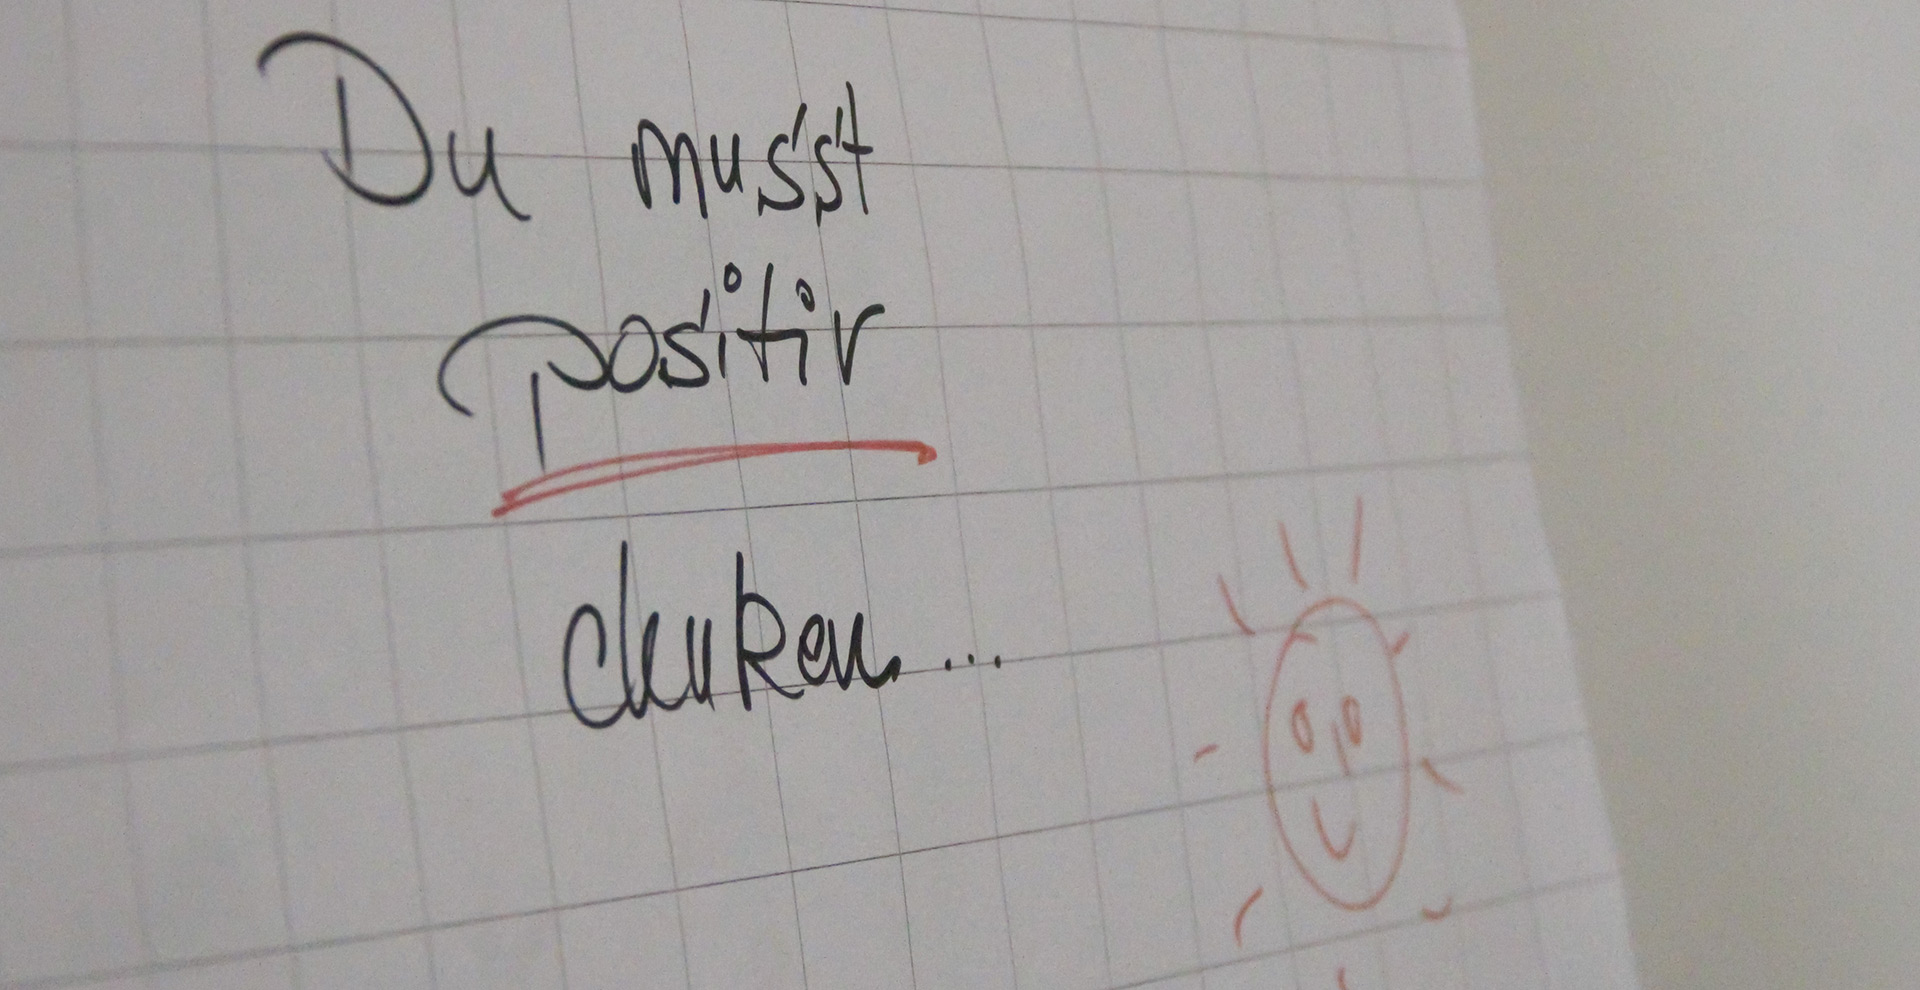 Du musst
positiv
denken...